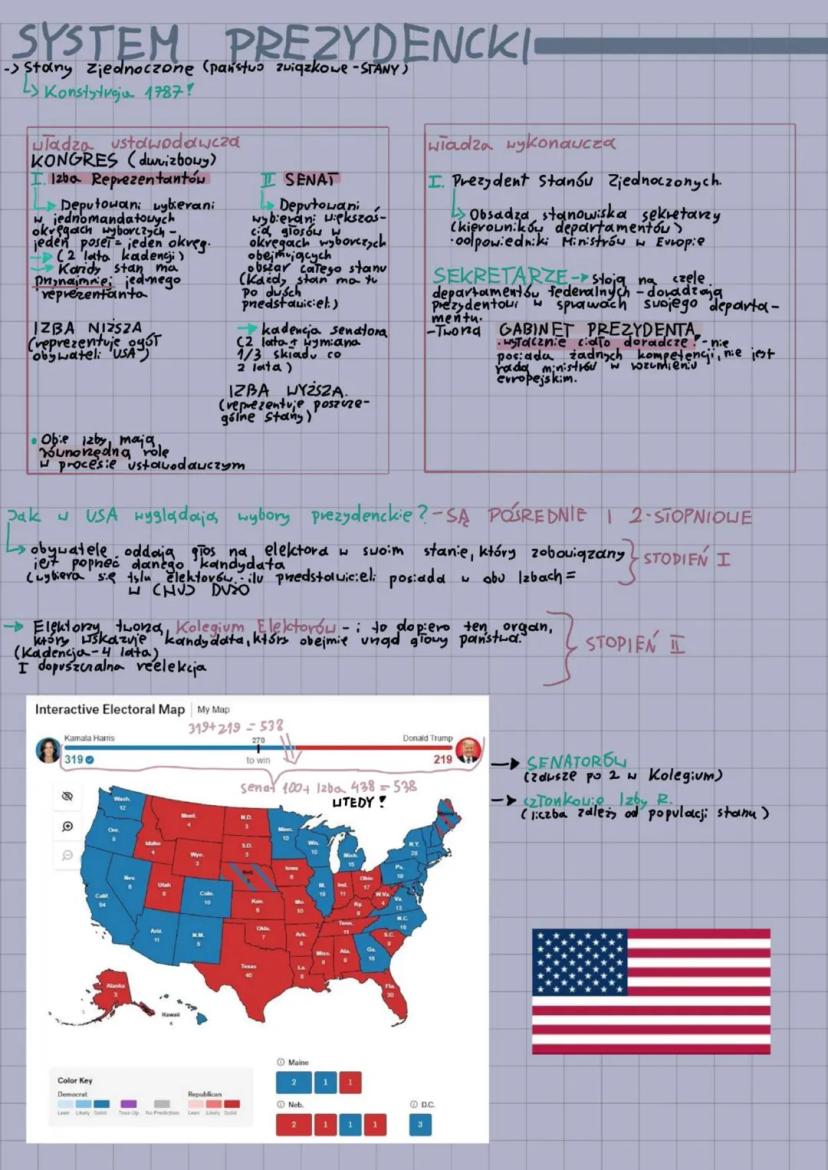 SYSTEM PREZYDENCKI
-> Stany Zjednoczone (państwo związkowe - STANY)
↳ Konstytucja 1787!
władza ustawodawcza
KONGRES (dwuizbowy)
I. Izba Reprezentantów
↳ Deputowani wybierani
w jednomandatowych
okręgach wyborczych -
jeden poseł = jeden okręg.
→ (2 lata kadencji)
→ Każdy stan ma
przynajmniej jednego
reprezentanta
IZBA NIŻSZA
(reprezentuje ogół
obywateli USA)
II SENAT
↳ Deputowani
wybierani większoś-
cią głosów w
okręgach wyborczych
obejmujących
obszar całego stanu
(Każdy stan ma tu
po dwóch
przedstawicieli)
→ kadencja senatora
(2 lata + wymiana
1/3 składu co
2 lata)
IZBA WYŻSZA.
(reprezentuje poszcze-
gólne stany)
• Obie izby mają
równorzędną rolę
w procesie ustawodawczym
władza wykonawcza
I. Prezydent Stanów Zjednoczonych.
↳ Obsadza stanowiska sekretarzy
(kierowników departamentów)
• odpowiedniki Ministrów w Europie
SEKRETARZE → stoją na czele
departamentów federalnych - doradzają
prezydentowi w sprawach swojego departa-
mentu.
- Tworzą GABINET PREZYDENTA
• wyłącznie ciało doradcze! - nie
posiada żadnych kompetencji, nie jest
radą ministrów w rozumieniu
europejskim.
Jak w USA wyglądają wybory prezydenckie? - SĄ POŚREDNIE I 2-STOPNIOWE
↳ obywatele oddają głos na elektora w swoim stanie, który zobowiązany
jest poprzeć danego kandydata
(wybiera się tylu elektorów - ilu przedstawicieli posiada w obu Izbach =
STOPIEŃ I
→ Elektorzy tworzą Kolegium Elektorów - i to dopiero ten organ,
który wskazuje kandydata, który obejmie urząd głowy państwa.
(Kadencja - 4 lata)
I dopuszczalna reelekcja
STOPIEŃ II
Interactive Electoral Map | My Map
319+219 = 538
Kamala Harris 270 Donald Trump
319 to win 219
senat 100 + Izba 438 = 538
WTEDY!
→ SENATORÓW
(zawsze po 2 w Kolegium)
→ członkowie Izby R.
(liczba zależy od populacji stanu)
Wash. 12
Mont. 4
N.D. 3
Minn. 10
Wis. 10
Mich. 15
N.Y. 28
Idaho 4
Wyo. 3
S.D. 3
Iowa 6
Ohio 17
Pa. 19
Nev. 6
Utah 6
Colo. 10
Kan. 6
Mo. 10
Ill. 19
Ind. 11
Ky. 8
W.Va. 4
Va. 13
Calif. 54
Ariz. 11
N.M. 5
Okla. 7
Ark. 6
Tenn. 11
N.C. 16
S.C. 9
Texas 40
La. 8
Miss. 6
Ala. 9
Ga. 16
Fla. 30
Alaska 3
Hawaii 4
Maine
2 1 1
Color Key
Democrat Republican
Lean Likely Solid Toss-Up No Prediction Lean Likely Solid
Neb. D.C.
2 1 1 1 3